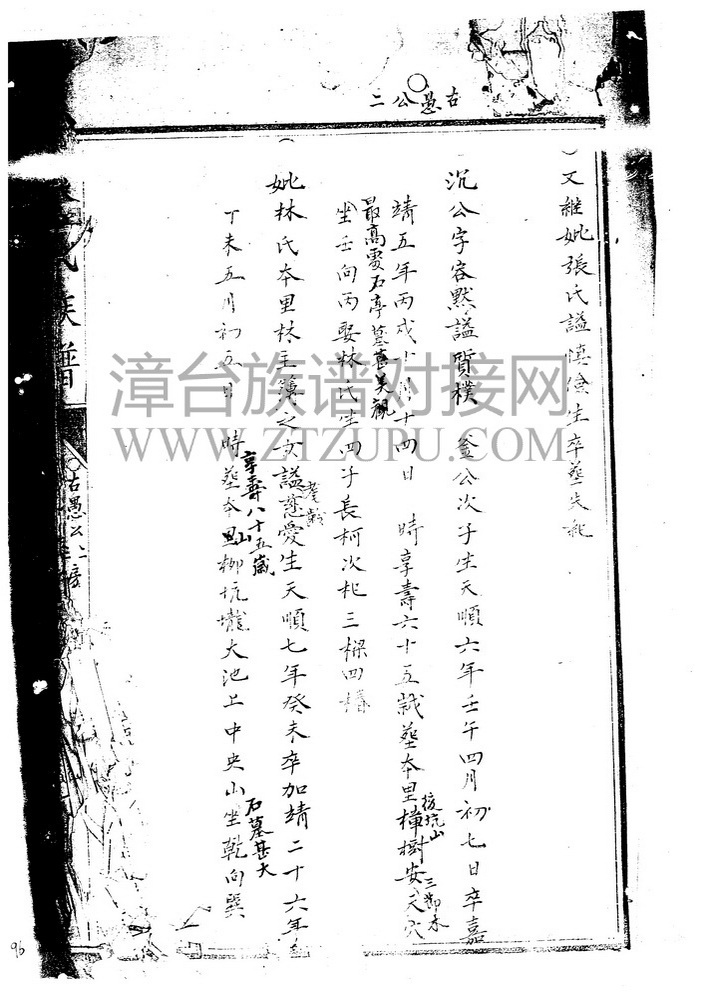 古愚公二
又繼妣張氏諡慎儉生卒葬失紀
沉公字容默諡質樸 釜公次子生天順六年壬午四月初七日卒嘉
靖五年丙戌十月十四日 時享壽六十五歲葬本里樟樹安天穴
後坑山
三節木
最高處石亭墓甚美觀
坐壬向丙娶林氏生四子長柯次杞三樑四椿
妣林氏本里林主簿之女諡慈愛生天順七年癸未卒加靖二十六年
孝懿
丁未五月初五日 時葬本里柳坑壠大池上中央山坐乾向巽
享壽八十五歲
山
石墓甚大
氏族譜
古愚公
漳台族谱对接网
WWW.ZTZUPU.COM
96